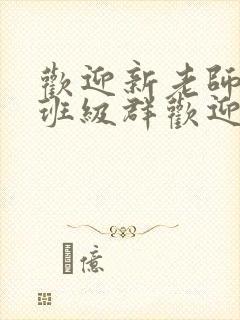 歡迎新老師
班級群歡迎
億